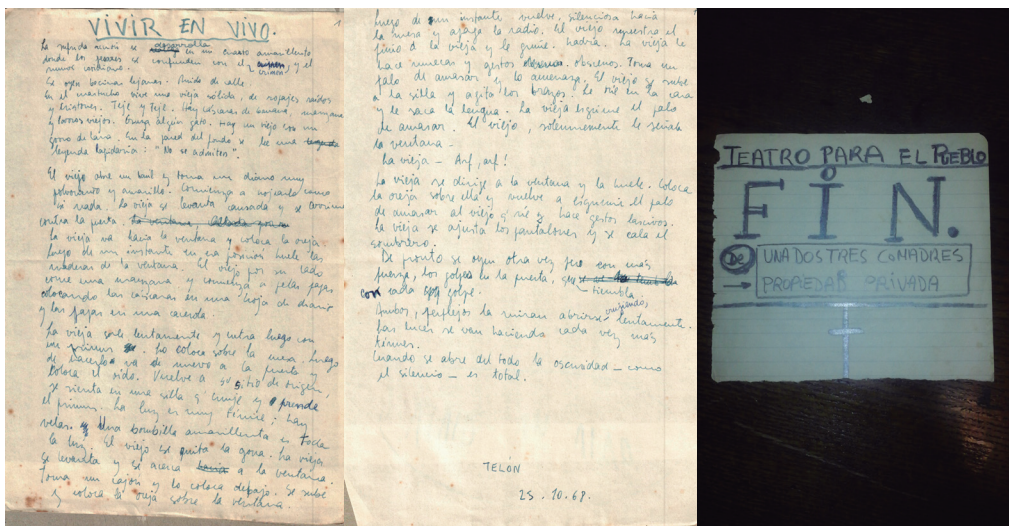 VIVIR EN VIVO.
1
La sufrida acción se desarrolla en un cuarto amarillento
donde los se confunden con el y el
mismo
Se oyen bocinas lejanas. Ruido de calle.
En el vive una vieja sólida, de ropajes raídos
y tristones. Teje y Teje. Hay cáscaras de banana, manzana
y viejos. algún gato. Hay un viejo con un
gorro de lana. En la pared del fondo se lee una
leyenda lapidaria: "No se admiten".
El viejo abre un baúl y toma un diario muy
polvoriento y amarillo. Comienza a hojearlo como
si nada. La vieja se levanta cansada y se arrima
contra la puerta.
La vieja va hacia la ventana y coloca la oreja
luego de un instante en esa posición huele las
maderas de la ventana. El viejo por su lado
come una manzana y comienza a
colocando las cáscaras en una hoja de diario
y las en una cuerda.
La vieja sale lentamente y entra luego con
un primus. Lo coloca sobre la mesa. Luego
de hacerlo va de nuevo a la puerta y
coloca el oído. Vuelve a su sitio de origen,
se sienta en una silla que cruje y prende
el primus. La luz es muy tenue; hay
velas. Una bombilla amarillenta es toda
la luz. El viejo se quita la gorra. La vieja
se levanta y se acerca hacia a la ventana.
Toma un cajón y lo coloca debajo. Se sube
y coloca la oreja sobre la ventana.
Luego de un instante vuelve silenciosa hacia
la mesa y apaga la radio. El viejo
a la vieja y le gruñe. Ladra. La vieja le
hace muecas y gestos obscenos. Toma un
palo de amasar y lo amenaza. El viejo se sube
a la silla y agita los brazos. Le ríe en la cara
y le saca la lengua. La vieja esgrime el palo
de amasar. El viejo, solemnemente le señala
la ventana -
La vieja - Arf, arf!
La vieja se dirige a la ventana y la huele. Coloca
la oreja sobre ella y vuelve a esgrimir el palo
de amasar al viejo y ríe y hace gestos lascivos.
La vieja se ajusta los pantalones y se cala el
sombrero.
De pronto se oyen otra vez pero con más
fuerza, los golpes en la puerta, que
con cada golpe. tiembla
Ambos, perplejos la miran abrirse crujiendo, lentamente.
Las luces se van haciendo cada vez más
tenues.
Cuando se abre del todo la oscuridad - como
el silencio - es total.
TELÓN
25.10.68.
TEATRO PARA EL PUEBLO
FIN.
De UNA DOS TRES COMADRES
→ PROPIEDAD PRIVADA